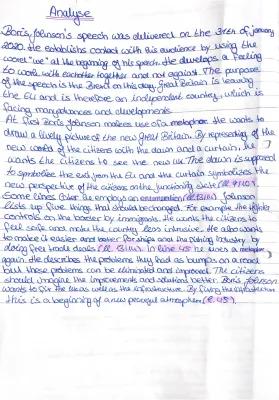 Analyse
Boris Johnson's speech was delivered on the 31st of january
2020. He establishs contact with his audience by using the
worst "we" at the beginning of his speech. He develops a feeling
to work with eachother together and not against. The purpose
of the speech is the Brexit on this day. Great Britain is leaving
the EU and is therefore an independent country, which is
facing many chances and developments.
At first Boris Johnson makes use of a metaphor. He wants to
draw a lively picture of the new Great Britain. By representing of the
new world of the citizens with the dawn and a curtain, he
wants the citizens to see the new UK. The dawn is supposed
to symbolize the exit from the EU and the curtain symbolizes the
new perspective of the citizens on the
Some lines later he employs an enumeration
lists up five things that should be changed. For example, the tighter
controls on the boarder by immigrants. He wants the citizens to
feel safe and make the country less intrusive. He also wants
to make it easier and better for ships and the fishing industry by
doing free trade deals In line 45 he uses a metaphor
again. He describes the problems they had as bumps on a road
but these problems can be eliminated and improved. The citizens
should imagine the improvements and solutions better. Boris Johnson
wants to fix the ideas as well as the infrastructure. By fixing the infrastructure
this is a beginning of a new peaceful atmosphere